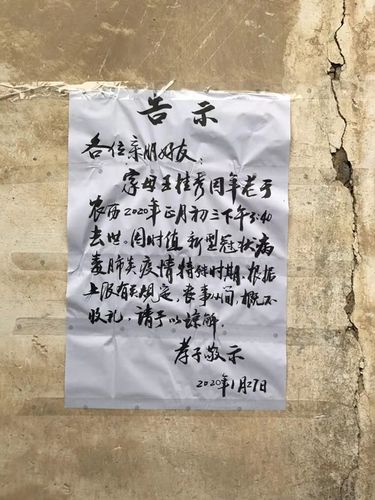 告示
各位亲朋好友:
家母王桂秀因年老于
农历2020年正月初三下午5:40
去世。因时值新型冠状病
毒肺炎疫情特殊时期,根据
上级有关规定,丧事从简,概不
收礼,请予以谅解.
孝子敬示
2020年1月27日